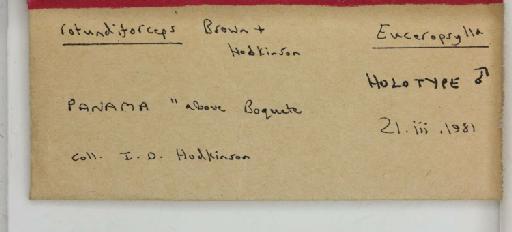 rotundiforceps Brown + Euceropsylla
Hodkinson
HOLOTYPE ♂
PANAMA "above Boquete
21.iii.1981
coll. I. D. Hodkinson